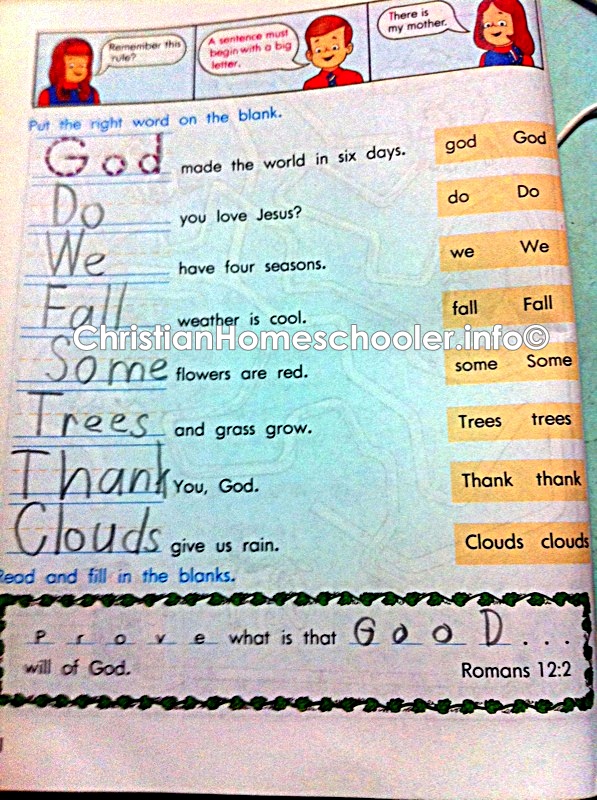 Remember this
rule?
A sentence must
begin with a big
letter.
There is
my mother.
Put the right word on the blank.
God made the world in six days. god God
Do you love Jesus? do Do
We have four seasons. we We
Fall weather is cool. fall Fall
ChristianHomeschooler.info©
Some flowers are red. some Some
Trees and grass grow. Trees trees
Thank You, God. Thank thank
Clouds give us rain. Clouds clouds
Read and fill in the blanks.
P r o v e what is that G o o D . . .
will of God. Romans 12:2